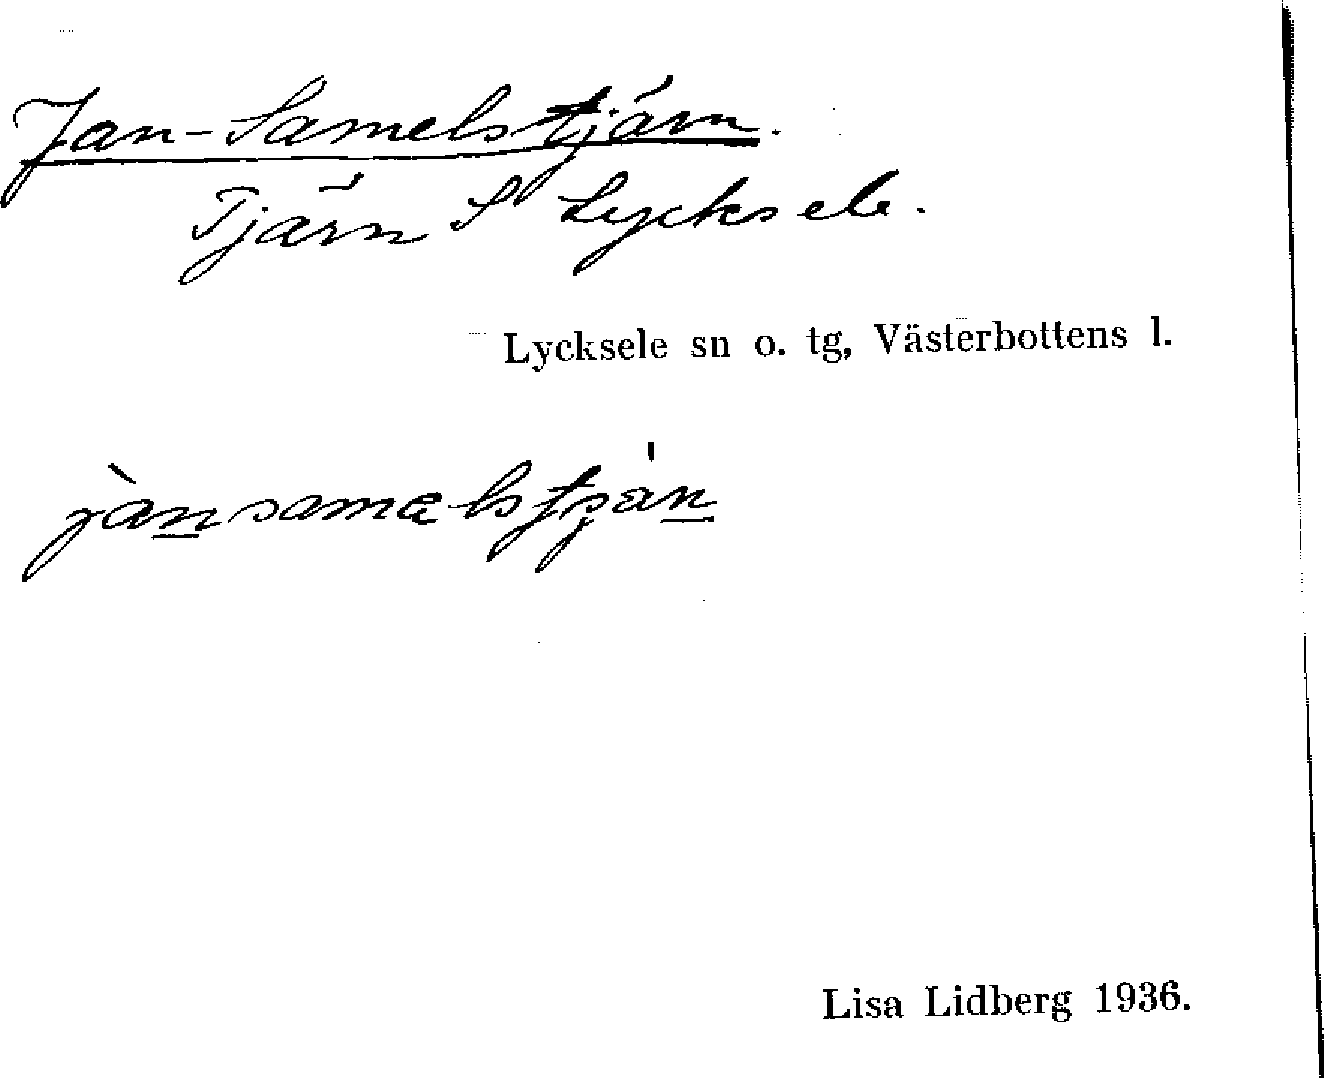 Jan-Samelstjärn.
Tjärn S Lycksele.
Lycksele sn o. tg, Västerbottens l.
Lisa Lidberg 1936.